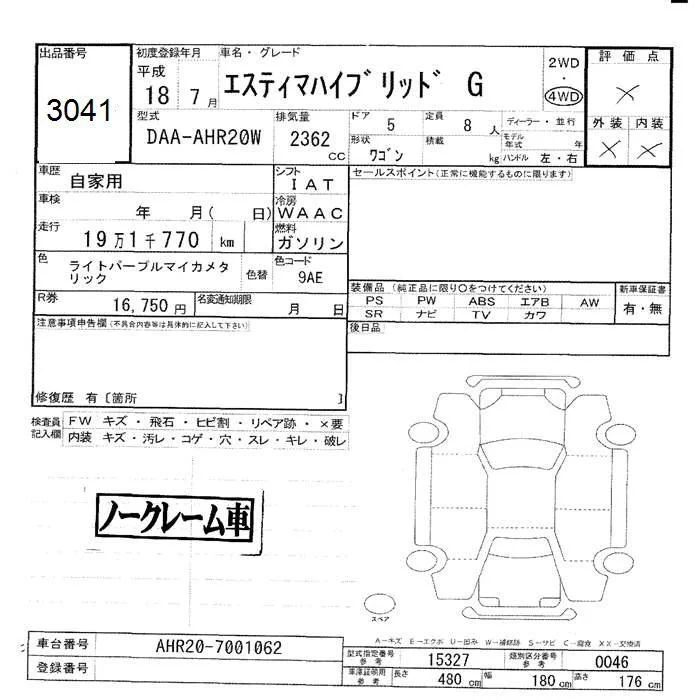 出品番号
3041
初度登録年月
平成
18 7 月
車名・グレード
エスティマハイブリッド G
2WD
・
4WD
評価点
×
外装 内装
× ×
型式
DAA-AHR20W
排気量
2362
CC
ドア
5
定員
8 人
形状
ワゴン
積載
kg
ディーラー・並行
モデル年式 年
ハンドル 左・右
車歴
自家用
シフト
IAT
車検
年 月( 日)
冷房
WAAC
走行
19万1千770 km
燃料
ガソリン
色
ライトパープルマイカメタ
リック
色替
色コード
9AE
R券
16,750 円
名変通知期限
月 日
セールスポイント(正常に機能するものに限ります)
装備品(純正品に限り○をつけてください)
PS PW ABS エアB AW
SR ナビ TV カワ
新車保証書
有・無
後日品
注意事項申告欄(不具合内容等は具体的に記入して下さい)
修復歴 有[箇所 ]
検査員
記入欄
FW キズ・飛石・ヒビ割・リペア跡・×要
内装 キズ・汚レ・コゲ・穴・スレ・キレ・破レ
ノークレーム車
スペア
A-キズ E-エクボ U-凹み W-補修跡 S-サビ C-腐食 XX-交換済
車台番号
AHR20-7001062
登録番号
型式指定番号
参考
15327
類別区分番号
参考
0046
車庫証明用
参考
長さ
480 cm
幅
180 cm
高さ
176 cm